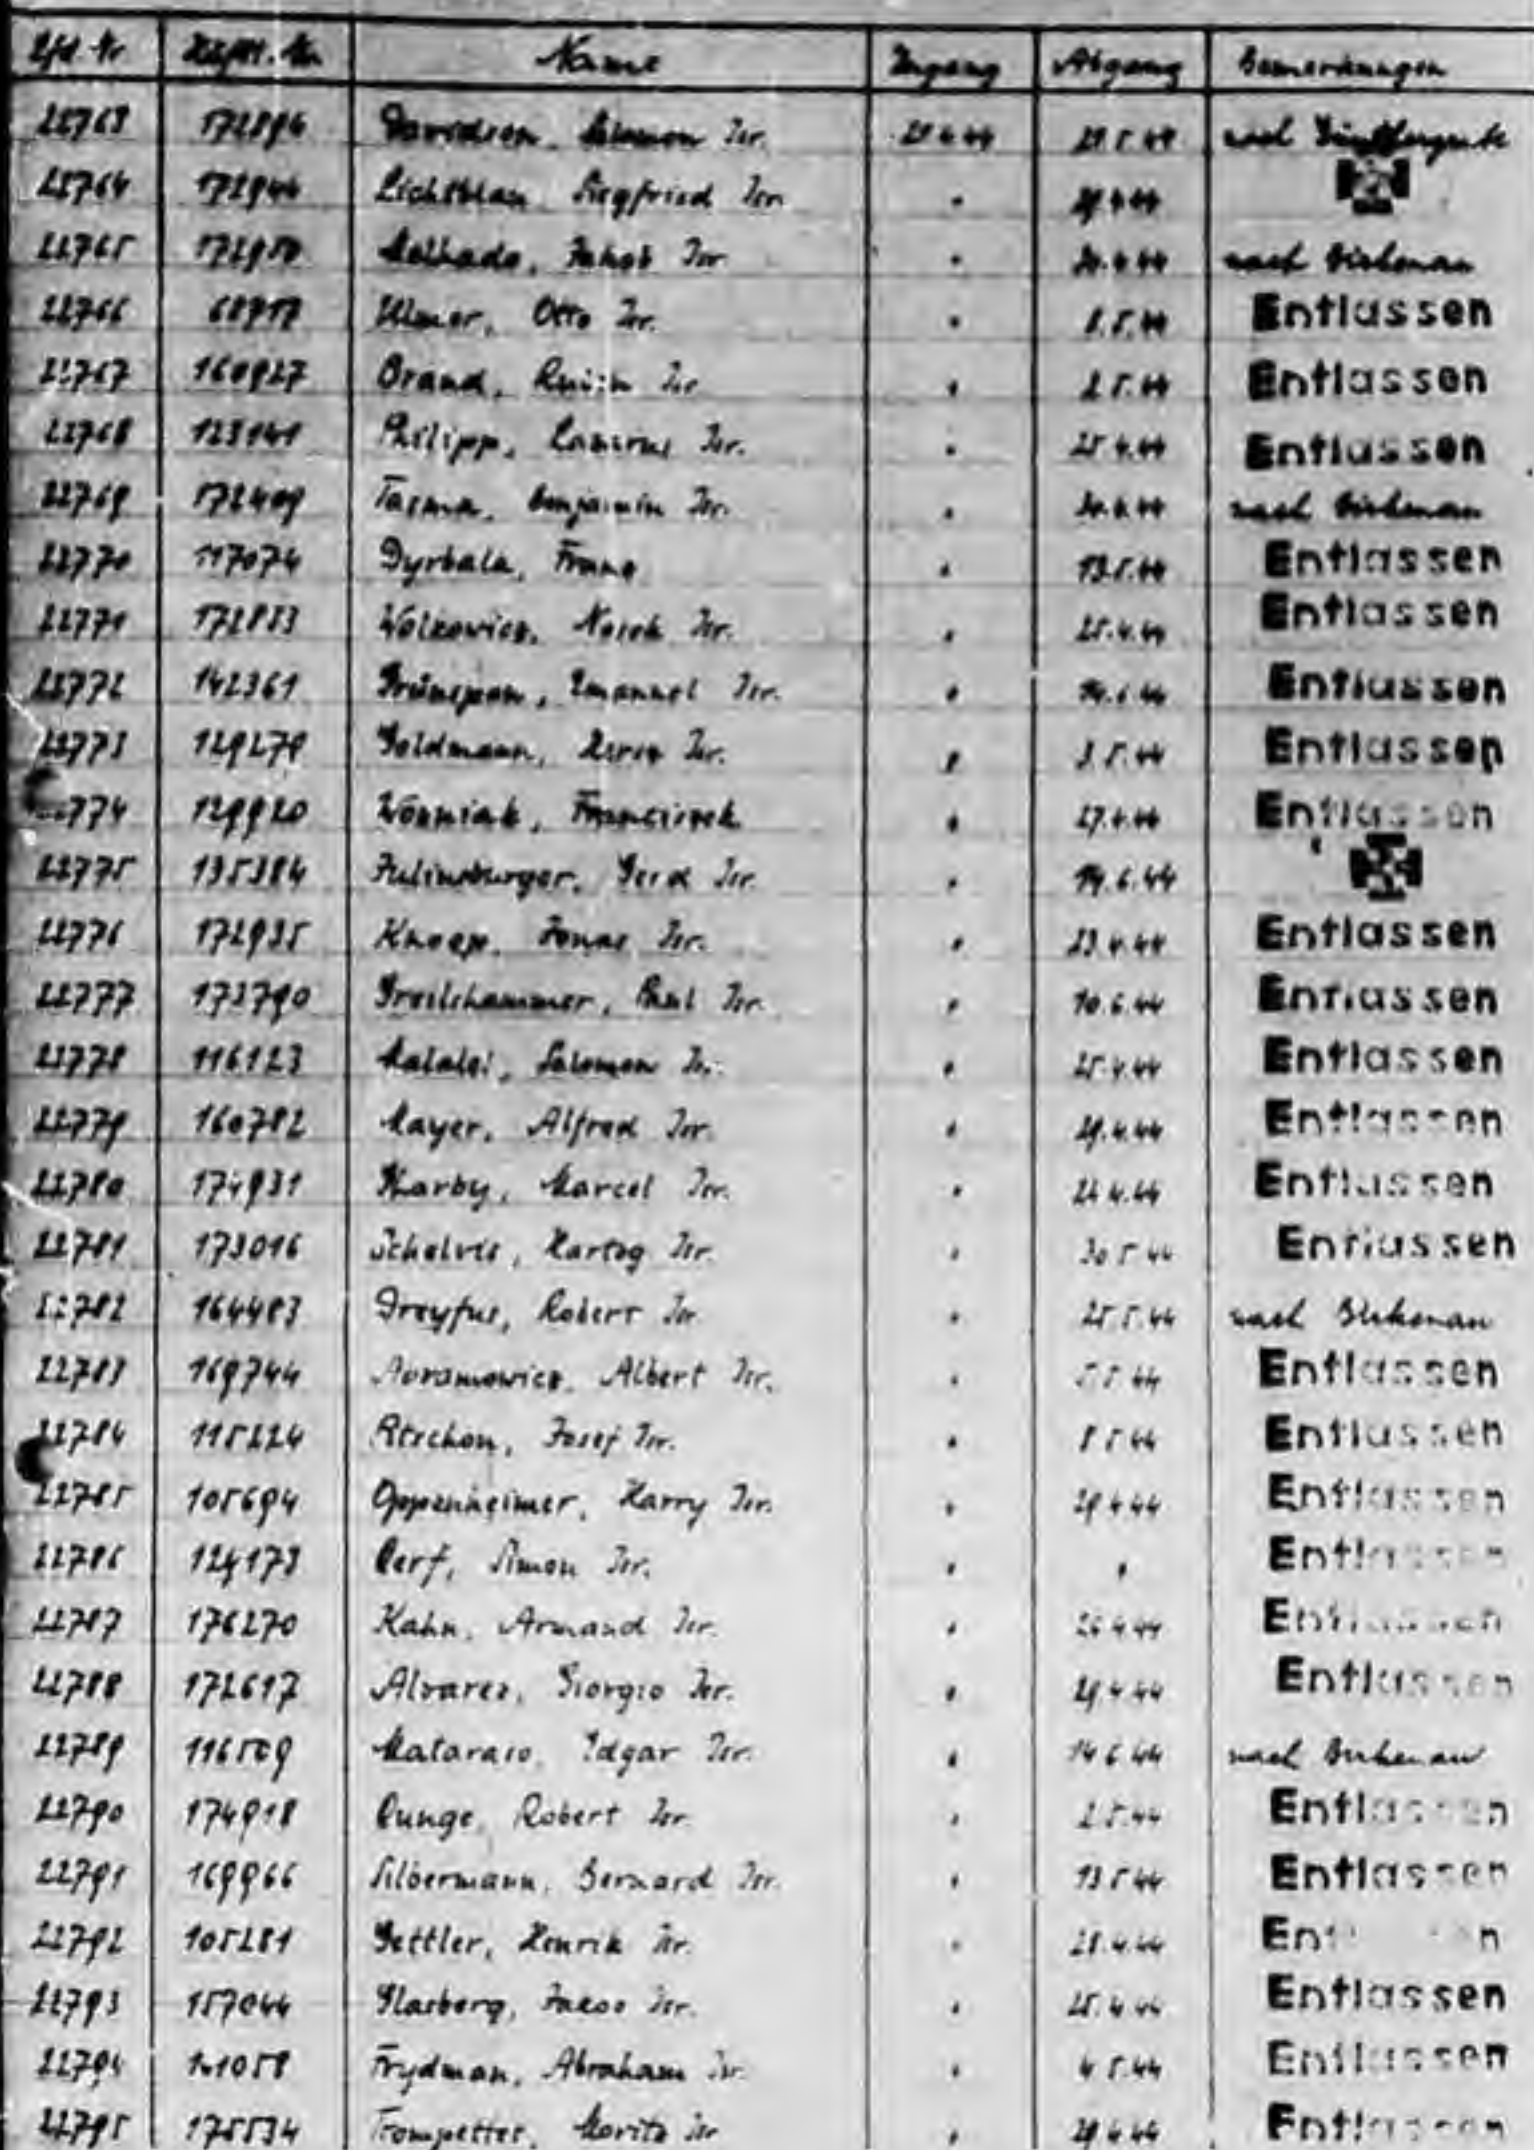 Lfd. Nr Häftl. Nr. Name Zugang Abgang Bemerkungen
22763 172896 Davidson, Salomon Isr. 29.5.44 nach
22764 172944 Lichtblau Siegfried Isr. " 29.4.44
22765 Jakob Isr. " 30.4.44 nach Birkenau
22766 68717 Ulmer, Otto Isr. " 8.5.44 Entlassen
22767 160927 Brand, Isr " 2.5.44 Entlassen
22768 123141 Philipp, Isr. " 25.4.44 Entlassen
22769 172409 Tasma, Benjamin Isr. " 30.4.44 nach Birkenau
22770 117074 Dyrbala, Franz " 13.5.44 Entlassen
22771 172853 Wolkowicz, Isr. " 25.4.44 Entlassen
22772 142361 Grünspan, Emanuel Isr. " 14.6.44 Entlassen
22773 129279 Goldmann, Isr. " 3.5.44 Entlassen
774 129920 Wozniak, Franciszek " 27.4.44 Entlassen
22775 135384 Juliusburger, Gerd Isr. " 14.6.44
22776 172935 Knoop, Jonas Isr. " 23.4.44 Entlassen
22777 173790 Greilshammer, Paul Isr. " 10.6.44 Entlassen
22778 116123 Salomon Isr. " 25.4.44 Entlassen
22779 160782 Mayer, Alfred Isr. " 29.4.44 Entlassen
22780 174931 Karby, Marcel Isr. " 24.4.44 Entlassen
22781 173016 Schelvis, Hartog Isr. " 30.5.44 Entlassen
22782 164483 Dreyfus, Robert Isr " 25.5.44 nach Birkenau
22783 169744 Avramowicz, Albert Isr. " 5.5.44 Entlassen
22784 115224 Josef Isr. " 8.5.44 Entlassen
22785 105694 Oppenheimer, Harry Isr. " 29.4.44 Entlassen
22786 124173 Cerf, Simon Isr. " " Entlassen
22787 176270 Kahn, Armand Isr. " 26.4.44 Entlassen
22788 172617 Alvares, Giorgio Isr. " 29.4.44 Entlassen
22789 116509 Mataraso, Edgar Isr. " 14.6.44 nach Birkenau
22790 174918 Runge, Robert Isr. " 2.5.44 Entlassen
22791 169966 Silbermann, Bernard Isr. " 13.5.44 Entlassen
22792 105281 Gettler, Henrik Isr. " 28.4.44 Entlassen
22793 157044 Glasberg, Jakob Isr. " 25.4.44 Entlassen
22794 Frydman, Abraham Isr. " 4.5.44 Entlassen
22795 175534 Trompetter, Moritz Isr " 29.4.44 Entlassen